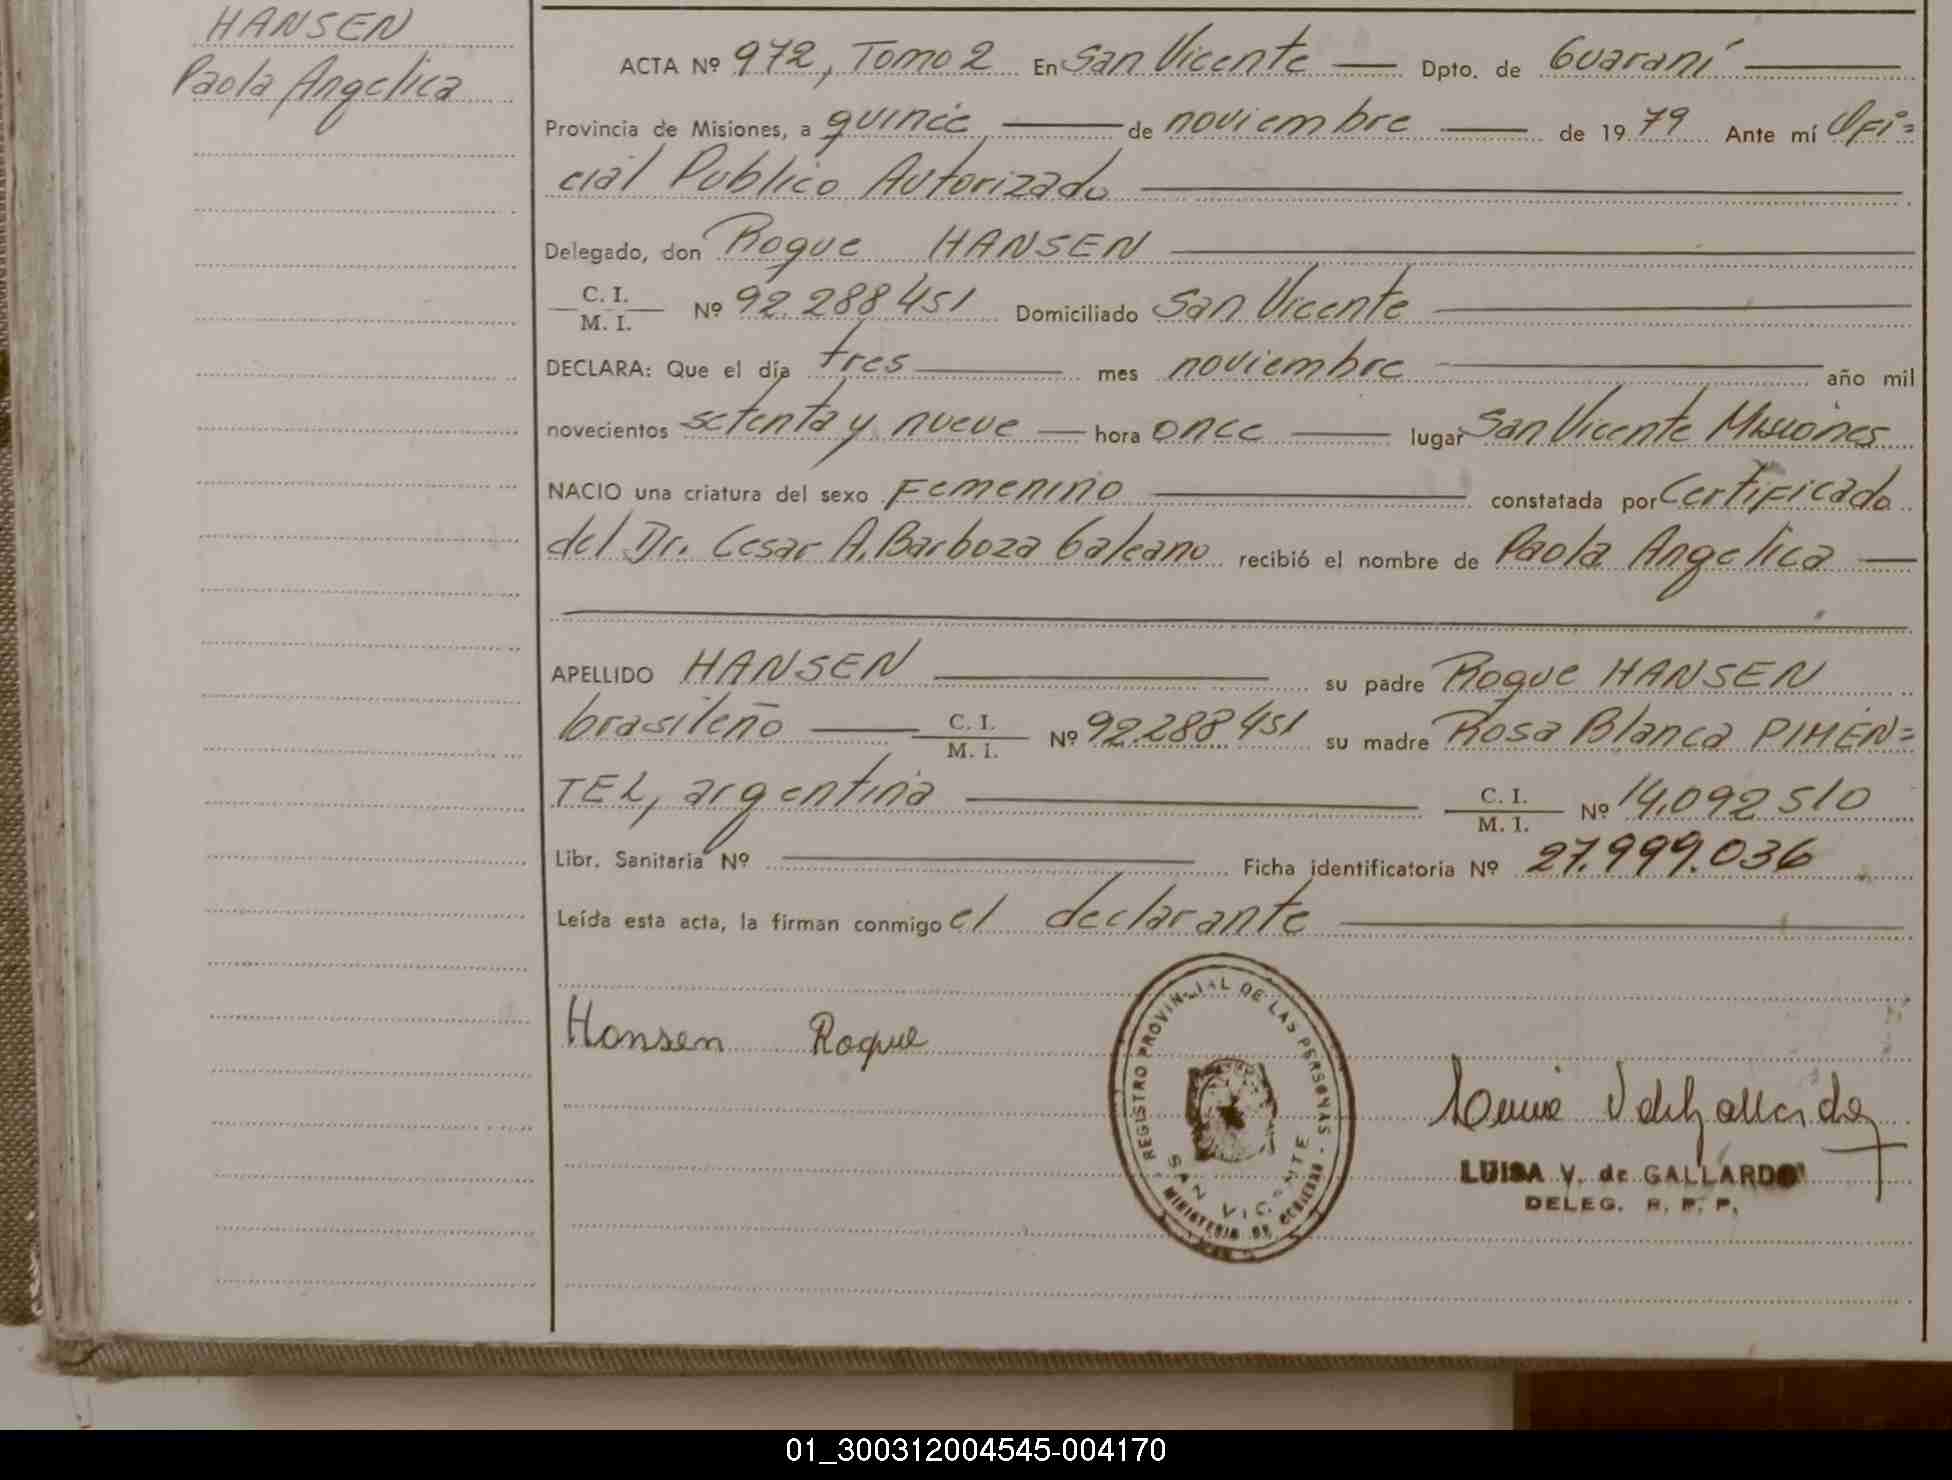 HANSEN
Paola Angelica
ACTA Nº 972, Tomo 2 En San Vicente Dpto. de Guaraní
Provincia de Misiones, a quince de noviembre de 1979 Ante mí Ofi=
cial Publico Autorizado
Delegado, don Roque HANSEN
C. I.
M. I. Nº 92.288451 Domiciliado San Vicente
DECLARA: Que el día tres mes noviembre año mil
novecientos setenta y nueve hora once lugar San Vicente Misiones
NACIO una criatura del sexo Femenino constatada por Certificado
del Dr. Cesar A. Barboza Galeano recibió el nombre de Paola Angelica
APELLIDO HANSEN su padre Roque HANSEN
brasileño C. I. M. I. Nº 92.288451 su madre Rosa Blanca PIMEN=
TEL, argentina C. I. M. I. Nº 14.092510
Libr. Sanitaria Nº Ficha identificatoria Nº 27.999.036
Leída esta acta, la firman conmigo el declarante
Hansen Roque
REGISTRO PROVINCIAL DE LAS PERSONAS
SAN VICENTE
MINISTERIO DE GOBIERNO
LUISA V. de GALLARDO
DELEG. R. P. P.
01_300312004545-004170